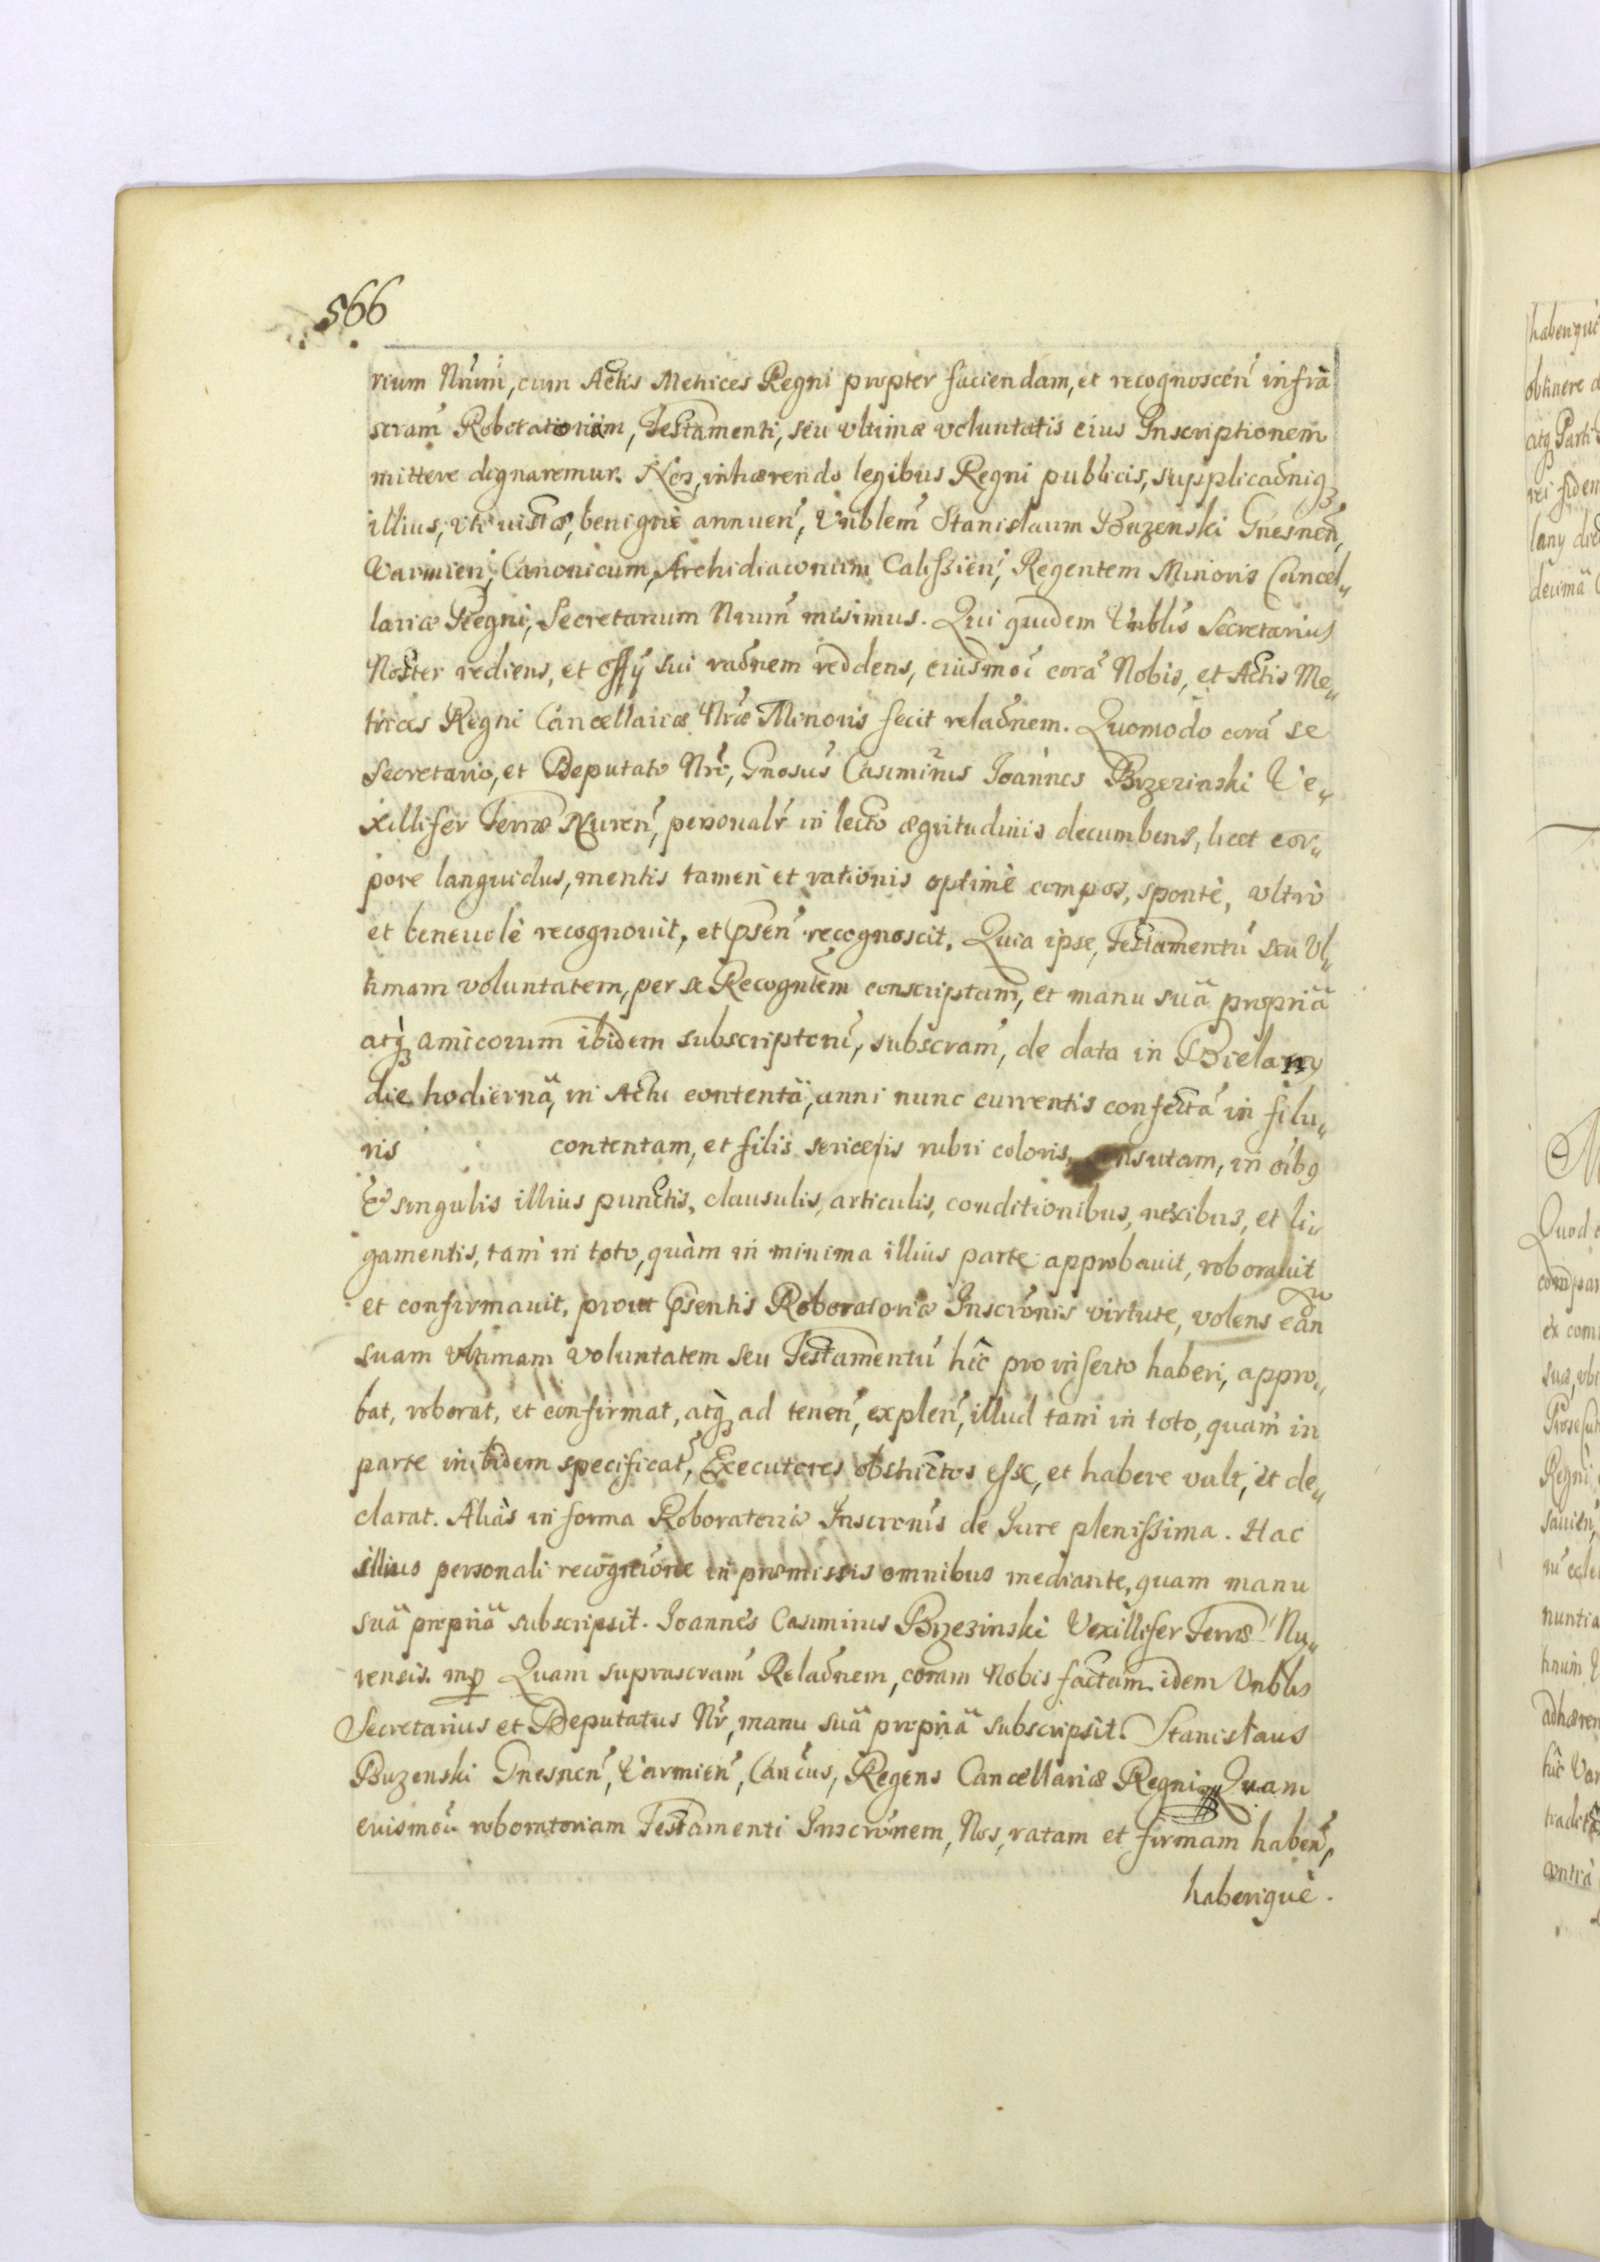 566
rium Nrum, cum Actis Metrices Regni propter faciendam, et recognoscen̄ infra
scram̄ Roboratoriam, Testamenti, seu vltimæ voluntatis eius Inscriptionem
mittere dignaremur. Nos, inhærendo legibus Regni publicis, supplicaōniq₃
illius, vti iustæ, benignè annuen̄, Vnblem̄ Stanislaum Buzenski Gnesnen̄,
Varmien̄, Canonicum, Archidiaconum Calissien̄, Regentem Minoris Cancel„
lariæ Regni, Secretarium Nrum̄ misimus. Qui quidem Vnblis̄ Secretarius
Noster rediens, et offÿ sui raōnem reddens, eiusmoī corā Nobis, et Actis Me„
trices Regni Cancellariæ Nræ Minoris fecit relaōnem. Quomodo corā se
Secretario, et Deputato Nrō, Gnosus̄ Casimirus Ioannes Brzezinski Ve„
xillifer Terræ Nuren̄, personalr̄ in lecto ægritudinis decumbens, licet cor„
pore languidus, mentis tamen et rationis optimè compos, spontè, vltrò
et beneuolè recognouit, et psen̄ recognoscit. Quia ipse, Testamentū seu Vl„
timam voluntatem, per se Recogntēm conscriptam, et manu suâ propriâ
atq₃ amicorum ibidem subscriptorū, subscram̄, de data in Bielany
die hodiernâ, in Actu contentâ, anni nunc currentis confectā in filu„
ris contentam, et filis sericeis rubri coloris consutam, in oībꝰ
& singulis illius punctis, clausulis, articulis, conditionibus, nexibus, et li„
gamentis, tam in toto, quàm in minima illius parte approbauit, roborauit
et confirmauit, prout psentis Roboratoriæ Inscrōnis virtute, volens ean
suam vltimam voluntatem seu Testamentū hîc pro inserto haberi, appro„
bat, roborat, et confirmat, atq₃ ad tenen̄, explen̄, illud tam in toto, quam in
parte inibidem specificat̄, Executores obstrictos esse, et habere vult, et de„
clarat. Aliàs in forma Roboratoriæ Inscronīs de Iure plenissima. Hac
illius personali recognitione in præmissis omnibus mediante, quam manu
suâ propriâ subscripsit. Ioannes Casimirus Brzezinski Vexillifer Terræ Nu„
rensis. mp Quam suprascram̄ Relaōnem, coram Nobis factam idem Vnblis
Secretarius et Deputatus Nr̄, manu suâ propriâ subscripsit. Stanislaus
Buzenski Gnesnen̄, Varmien̄, Cancūs, Regens Cancellariæ Regni Quam
euismoū roboratoriam Testamenti Inscrōnem, Nos, ratam et firmam haben̄,
haberiquè.